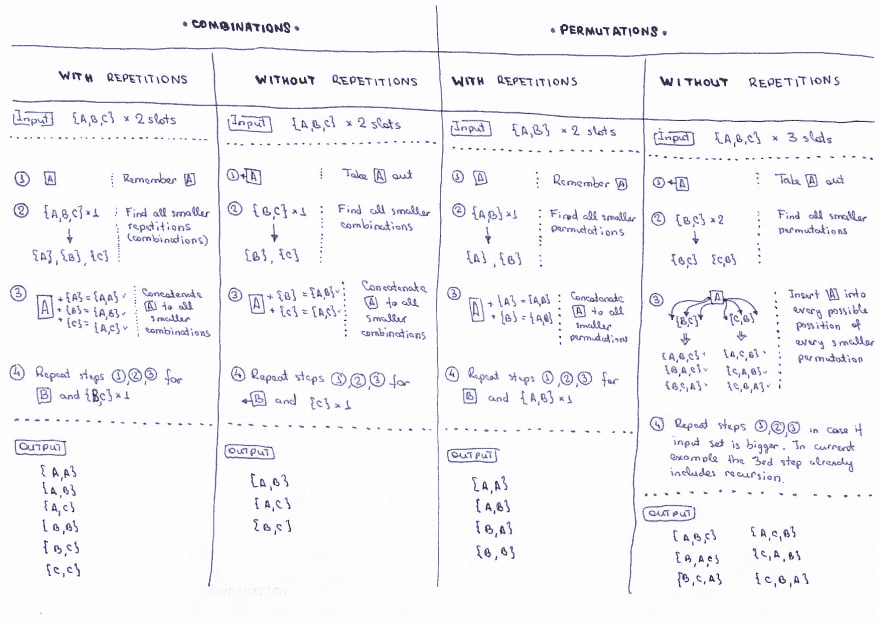 • COMBINATIONS •
WITH REPETITIONS
Input {A,B,C} × 2 slots
① A Remember A
② {A,B,C}×1 Find all smaller
repetitions
(combinations)
{A}, {B}, {C}
③ A + {A} = {A,A} Concatenate
+ {B} = {A,B} A to all
+ {C} = {A,C} smaller
combinations
④ Repeat steps ①,②,③ for
B and {B,C}×1
OUTPUT
{A,A}
{A,B}
{A,C}
{B,B}
{B,C}
{C,C}
WITHOUT REPETITIONS
Input {A,B,C} × 2 slots
① A Take A out
② {B,C}×1 Find all smaller
combinations
{B}, {C}
③ A + {B} = {A,B} Concatenate
+ {C} = {A,C} A to all
smaller
combinations
④ Repeat steps ①,②,③ for
B and {C}×1
OUTPUT
{A,B}
{A,C}
{B,C}
• PERMUTATIONS •
WITH REPETITIONS
Input {A,B} × 2 slots
① A Remember A
② {A,B}×1 Find all smaller
permutations
{A}, {B}
③ A + {A} = {A,A} Concatenate
+ {B} = {A,B} A to all
smaller
permutations
④ Repeat steps ①,②,③ for
B and {A,B}×1
OUTPUT
{A,A}
{A,B}
{B,A}
{B,B}
WITHOUT REPETITIONS
Input {A,B,C} × 3 slots
① A Take A out
② {B,C}×2 Find all smaller
permutations
{B,C} {C,B}
③ A Insert A into
{B,C} {C,B} every possible
possition of
{A,B,C} {A,C,B} every smaller
{B,A,C} {C,A,B} permutation
{B,C,A} {C,B,A}
④ Repeat steps ①,②,③ in case if
input set is bigger. In current
example the 3rd step already
includes recursion.
OUTPUT
{A,B,C} {A,C,B}
{B,A,C} {C,A,B}
{B,C,A} {C,B,A}